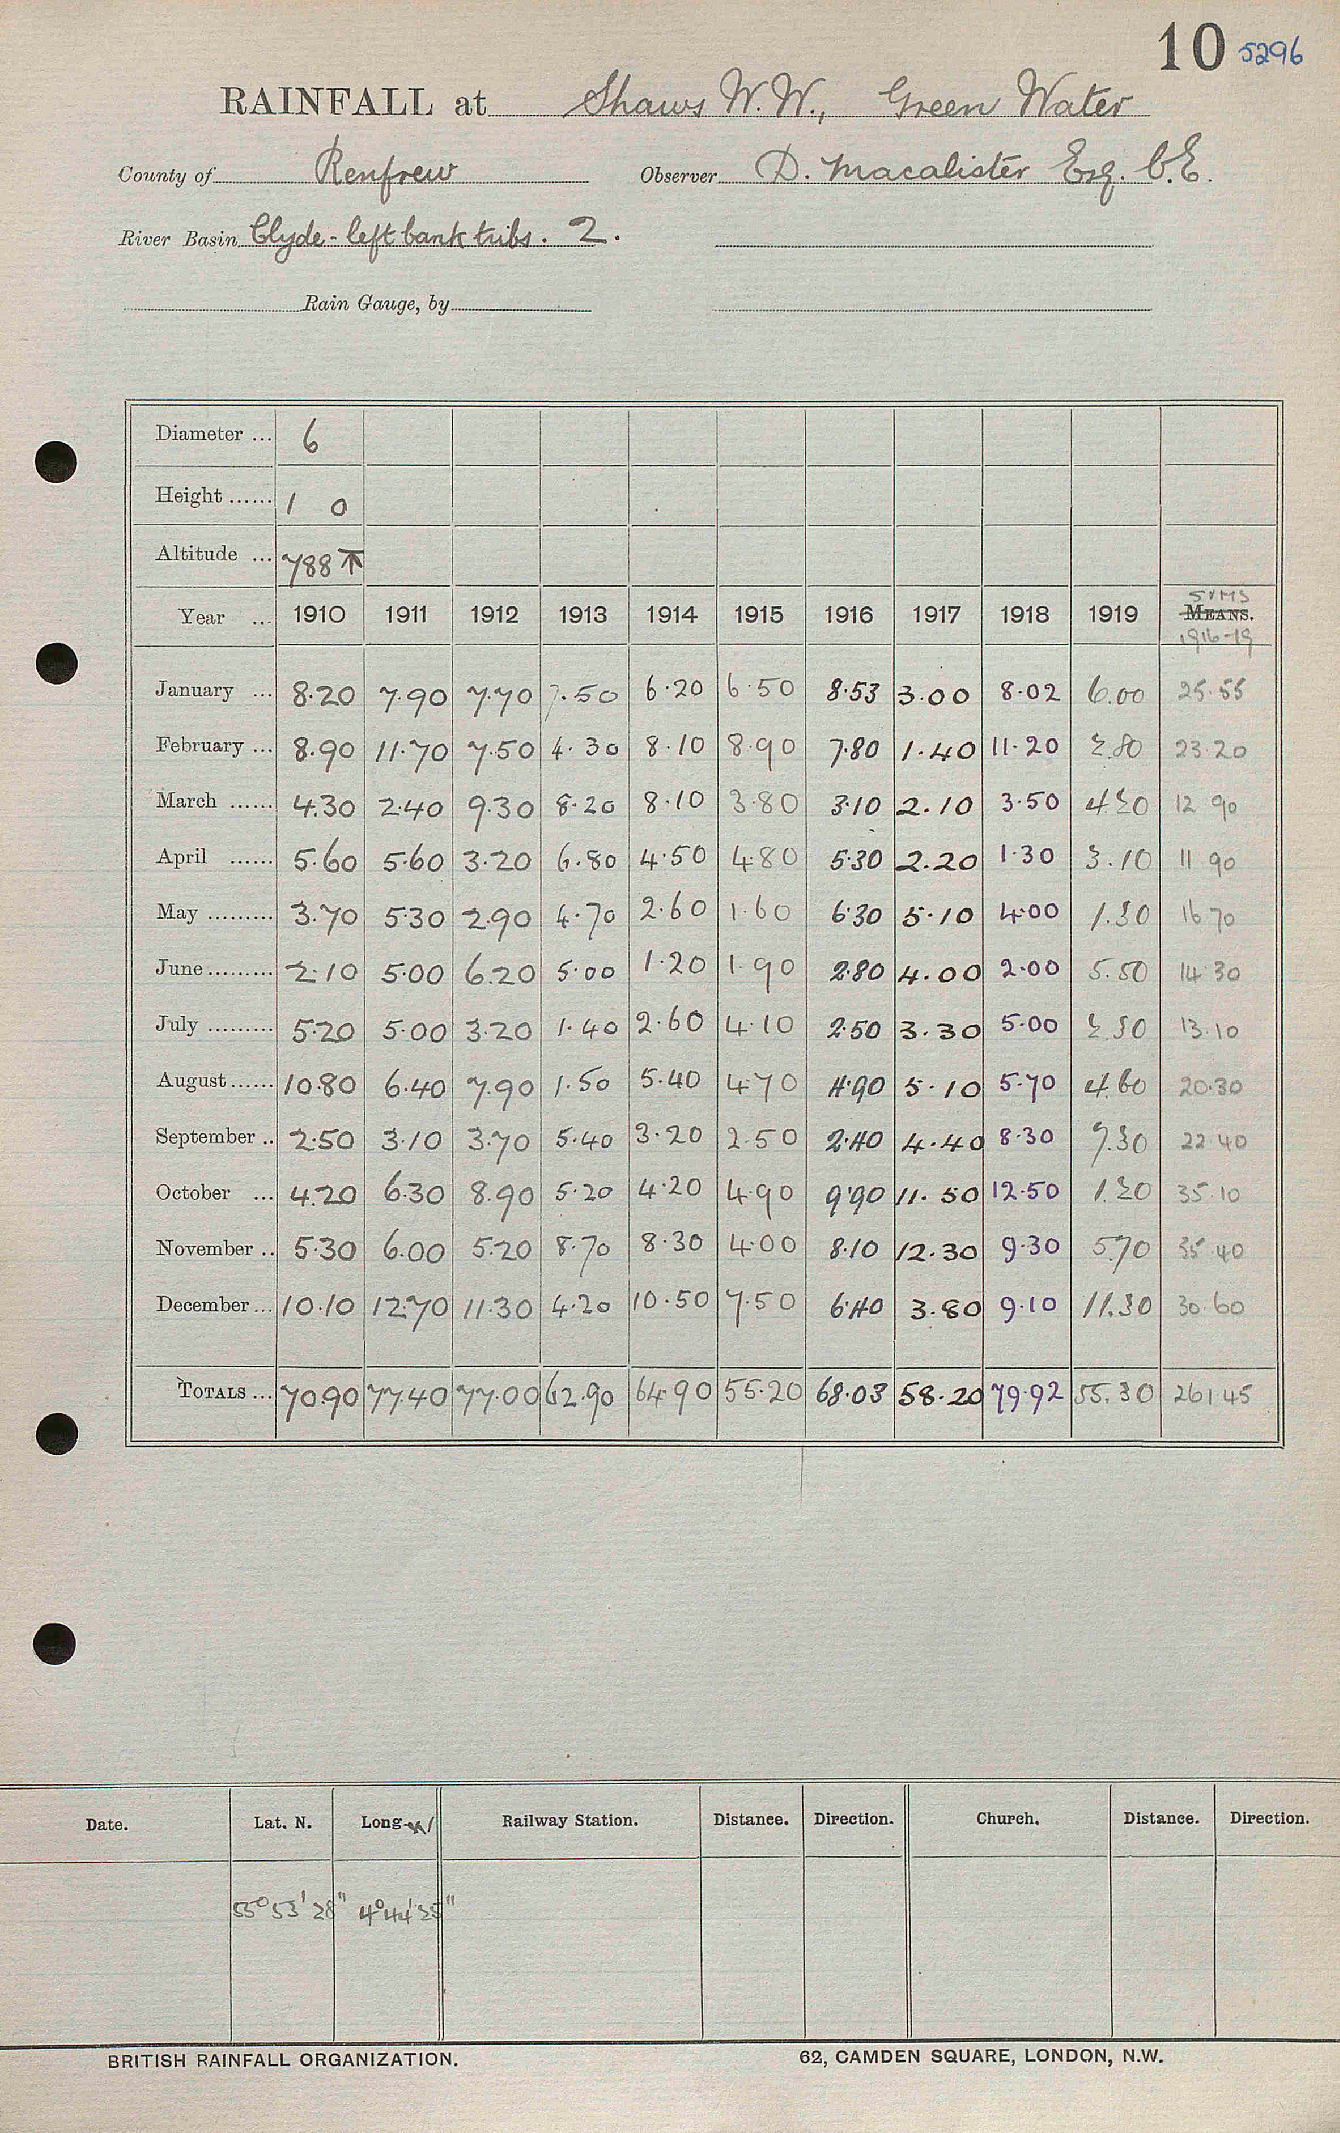 10 5296
RAINFALL at Shaws W.W., Green Water
County of Renfrew Observer D. Macalister Esq. C.E.
River Basin Clyde - left bank tribs. 2.
Rain Gauge, by
Diameter ... 6
Height ...... 1 0
Altitude ... 788 ↑
Year ... 1910 1911 1912 1913 1914 1915 1916 1917 1918 1919 SUMS MEANS. 1916-19
January ... 8.20 7.90 7.70 7.50 6.20 6.50 8.53 3.00 8.02 6.00 25.55
February ... 8.90 11.70 7.50 4.30 8.10 8.90 7.80 1.40 11.20 2.80 23.20
March ...... 4.30 2.40 9.30 8.20 8.10 3.80 3.10 2.10 3.50 4.20 12.90
April ...... 5.60 5.60 3.20 6.80 4.50 4.80 5.30 2.20 1.30 3.10 11.90
May ......... 3.70 5.30 2.90 4.70 2.60 1.60 6.30 5.10 4.00 1.30 16.70
June ......... 2.10 5.00 6.20 5.00 1.20 1.90 2.80 4.00 2.00 5.50 14.30
July ......... 5.20 5.00 3.20 1.40 2.60 4.10 2.50 3.30 5.00 2.30 13.10
August ...... 10.80 6.40 7.90 1.50 5.40 4.70 4.90 5.10 5.70 4.60 20.30
September .. 2.50 3.10 3.70 5.40 3.20 2.50 2.40 4.40 8.30 7.30 22.40
October ... 4.20 6.30 8.90 5.20 4.20 4.90 9.90 11.50 12.50 1.20 35.10
November .. 5.30 6.00 5.20 8.70 8.30 4.00 8.10 12.30 9.30 5.70 35.40
December ... 10.10 12.70 11.30 4.20 10.50 7.50 6.40 3.80 9.10 11.30 30.60
TOTALS ... 70.90 77.40 77.00 62.90 64.90 55.20 68.03 58.20 79.92 55.30 261.45
Date. Lat. N. Long. W Railway Station. Distance. Direction. Church. Distance. Direction.
55° 53' 28" 4° 44' 25"
BRITISH RAINFALL ORGANIZATION. 62, CAMDEN SQUARE, LONDON, N.W.